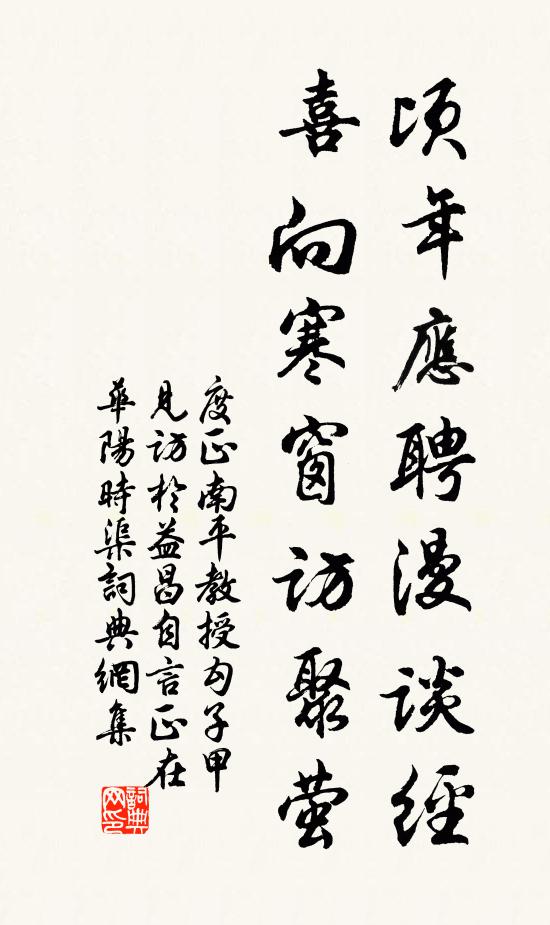 頃年應聘漫談經
喜向寒窗訪聚螢
度正南平教授勾子甲
見訪於益昌自言正在
華陽時渠詞典網集
詞典网印